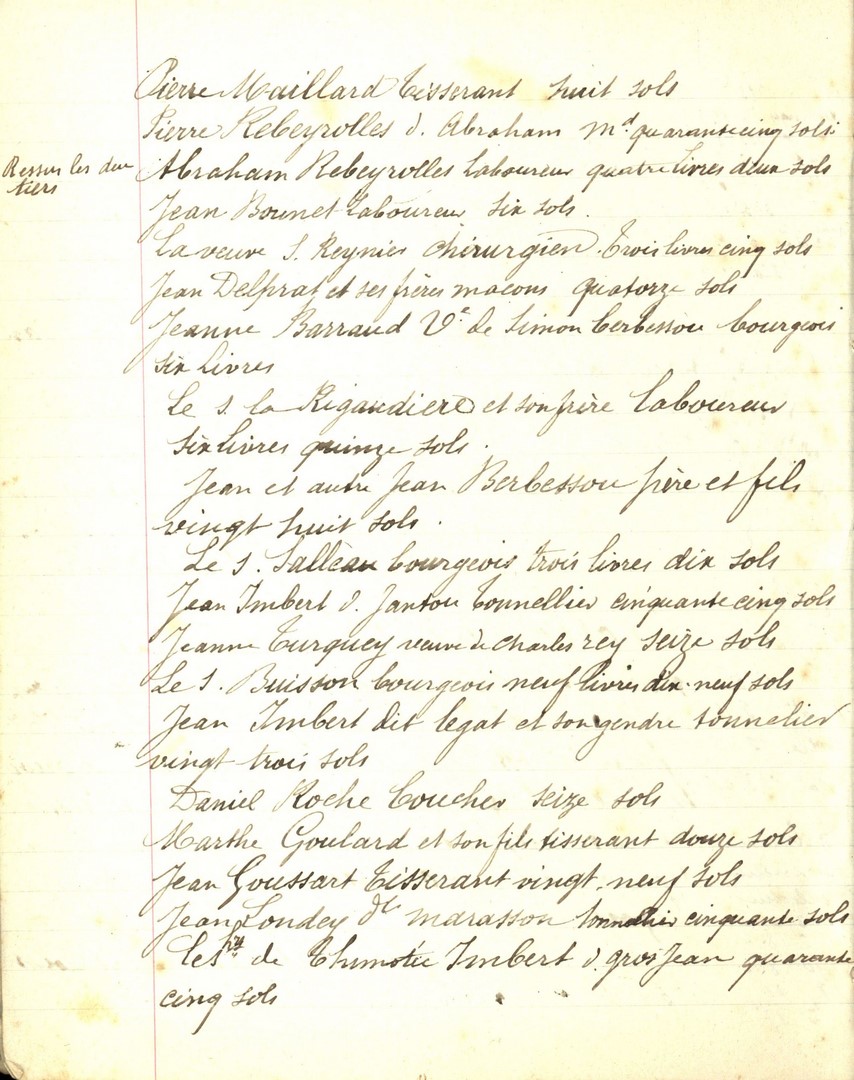 Pierre Maillard tisserant huit sols
Pierre Rebeyrolles d. Abraham md quarante cinq sols
Ressus les deux
tiers
Abraham Rebeyrolles laboureur quatre livres deux sols
Jean Bounet laboureur six sols.
La veuve S. Reynier chirurgien. trois livres cinq sols
Jean Delprat et ses frères macons quatorze sols
Jeanne Barraud Ve de Simon Berbessou bourgeois
six livres
Le s. la Rigaudiere et son frère laboureur
six livres quinze sols.
Jean et autre Jean Berbessou père et fils
vingt huit sols.
Le s. Salleau bourgeois trois livres dix sols
Jean Imbert d. Jantou tonnellier cinquante cinq sols
Jeanne Turquey veuve de Charles rey seize sols
Le s. Buisson bourgeois neuf livres dix-neuf sols
Jean Imbert dit legat et son gendre tonnelier
vingt trois sols
Daniel Roche boucher seize sols
Marthe Goulard et son fils tisserant douze sols
Jean Goussart tisserant vingt-neuf sols
Jean Londey dt marasson tonnellier cinquante sols
Les de Thimotée Imbert d. gros Jean quarante
cinq sols